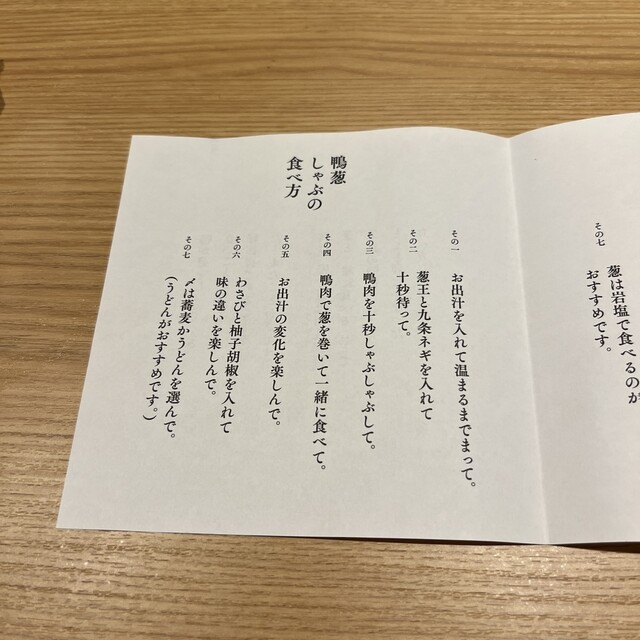 その七
葱は岩塩で食べるのが
おすすめです。
鴨葱
しゃぶの
食べ方
その一
お出汁を入れて温まるまでまって。
その二
葱王と九条ネギを入れて
十秒待って。
その三
鴨肉を十秒しゃぶしゃぶして。
その四
鴨肉で葱を巻いて一緒に食べて。
その五
お出汁の変化を楽しんで。
その六
わさびと柚子胡椒を入れて
味の違いを楽しんで。
その七
〆は蕎麦かうどんを選んで。
（うどんがおすすめです。）